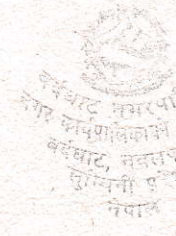 बर्दघाट नगरपा
नगर कार्यपालिकाको
बर्दघाट, नवलप
लुम्बिनी प्र
नेपाल